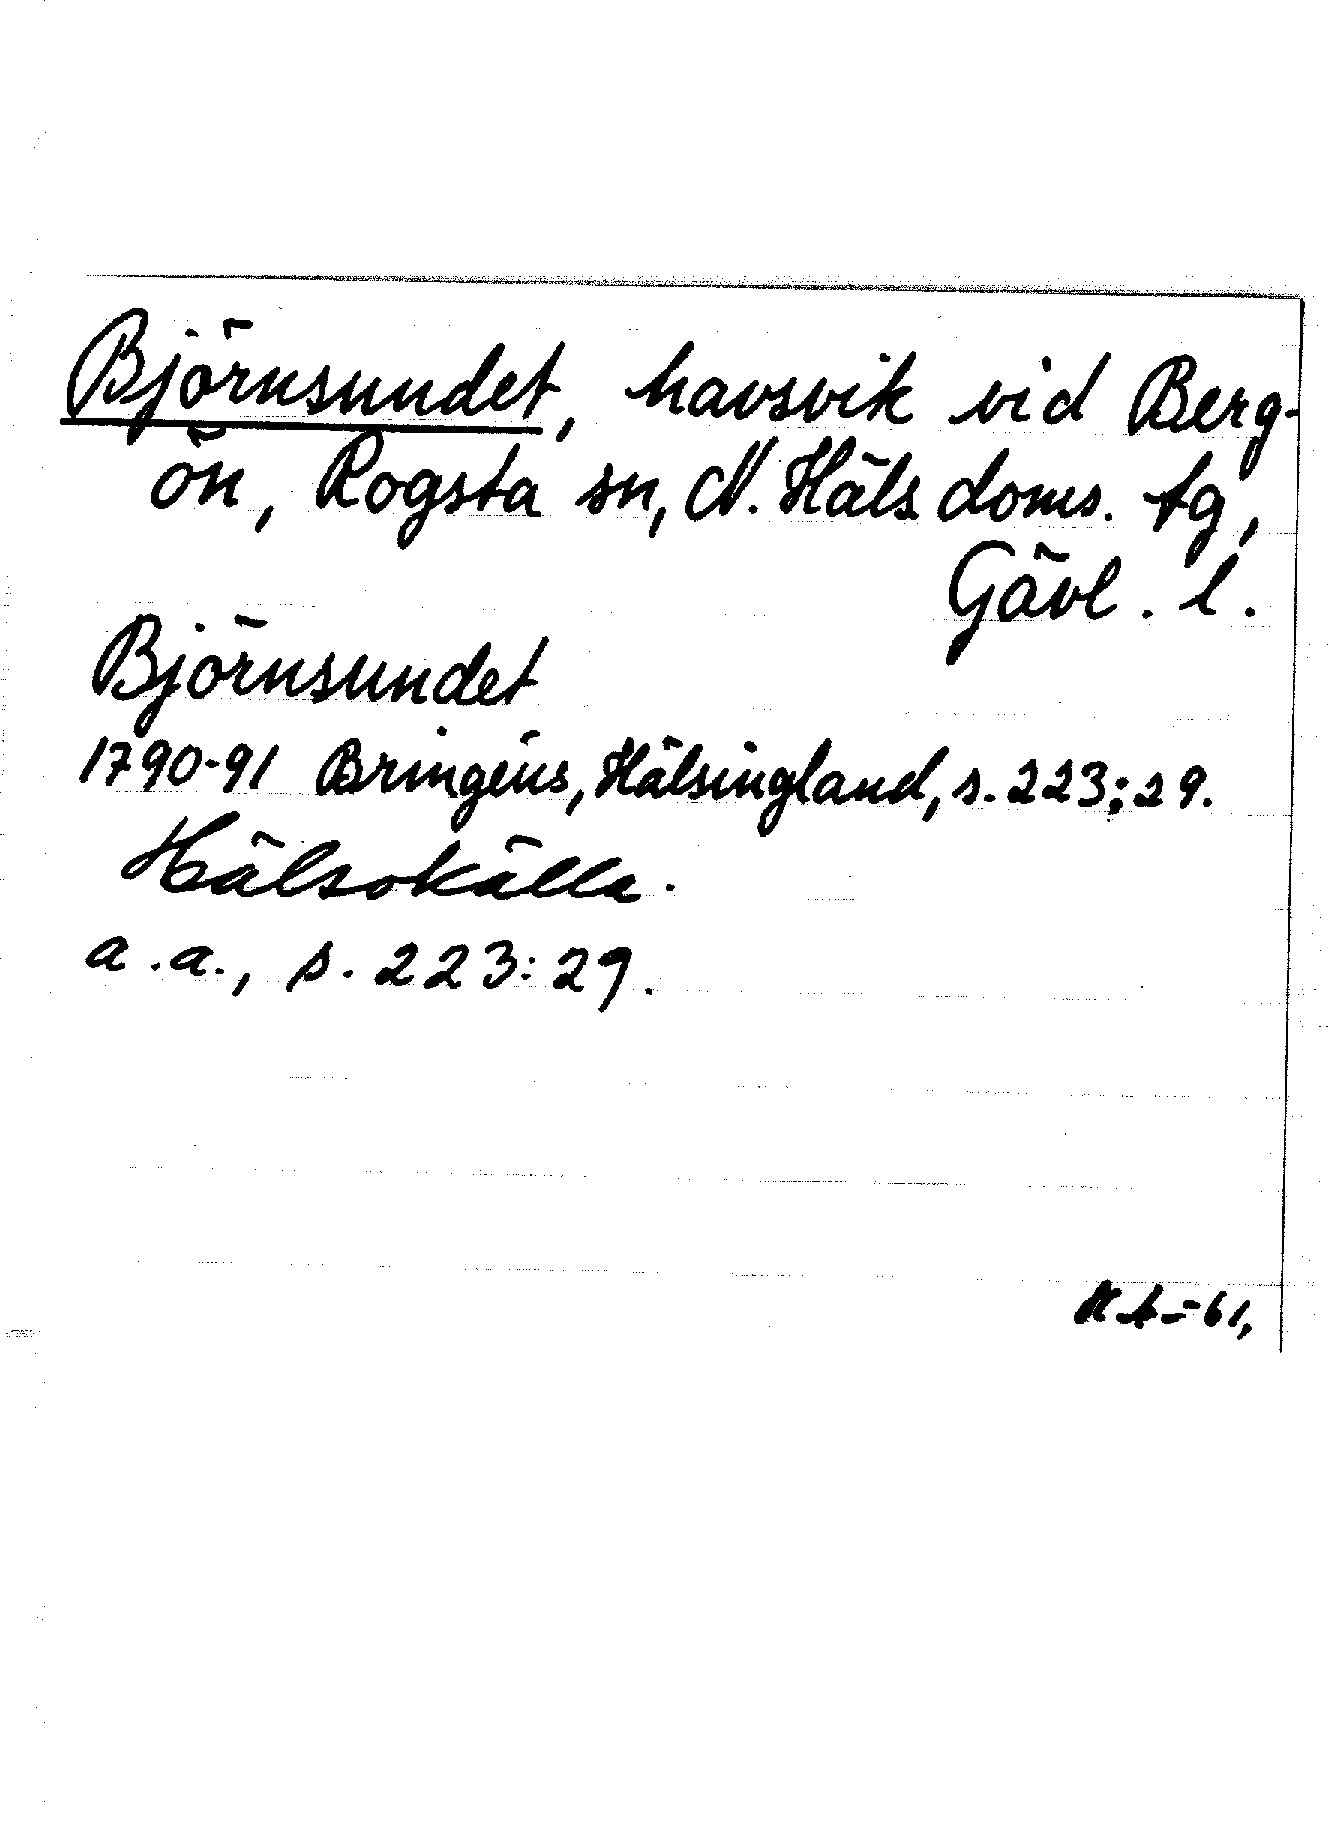 Björnsundet, havsvik vid Berg-
ön, Rogsta sn, N. Häls doms. tg,
Gävl. l.
Björnsundet
1790-91 Bringéus, Hälsingland, s. 223:29.
Hälsokälla.
a.a., s. 223:29.
-61,